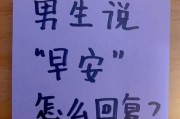 男生说
"早安"
怎么回复?